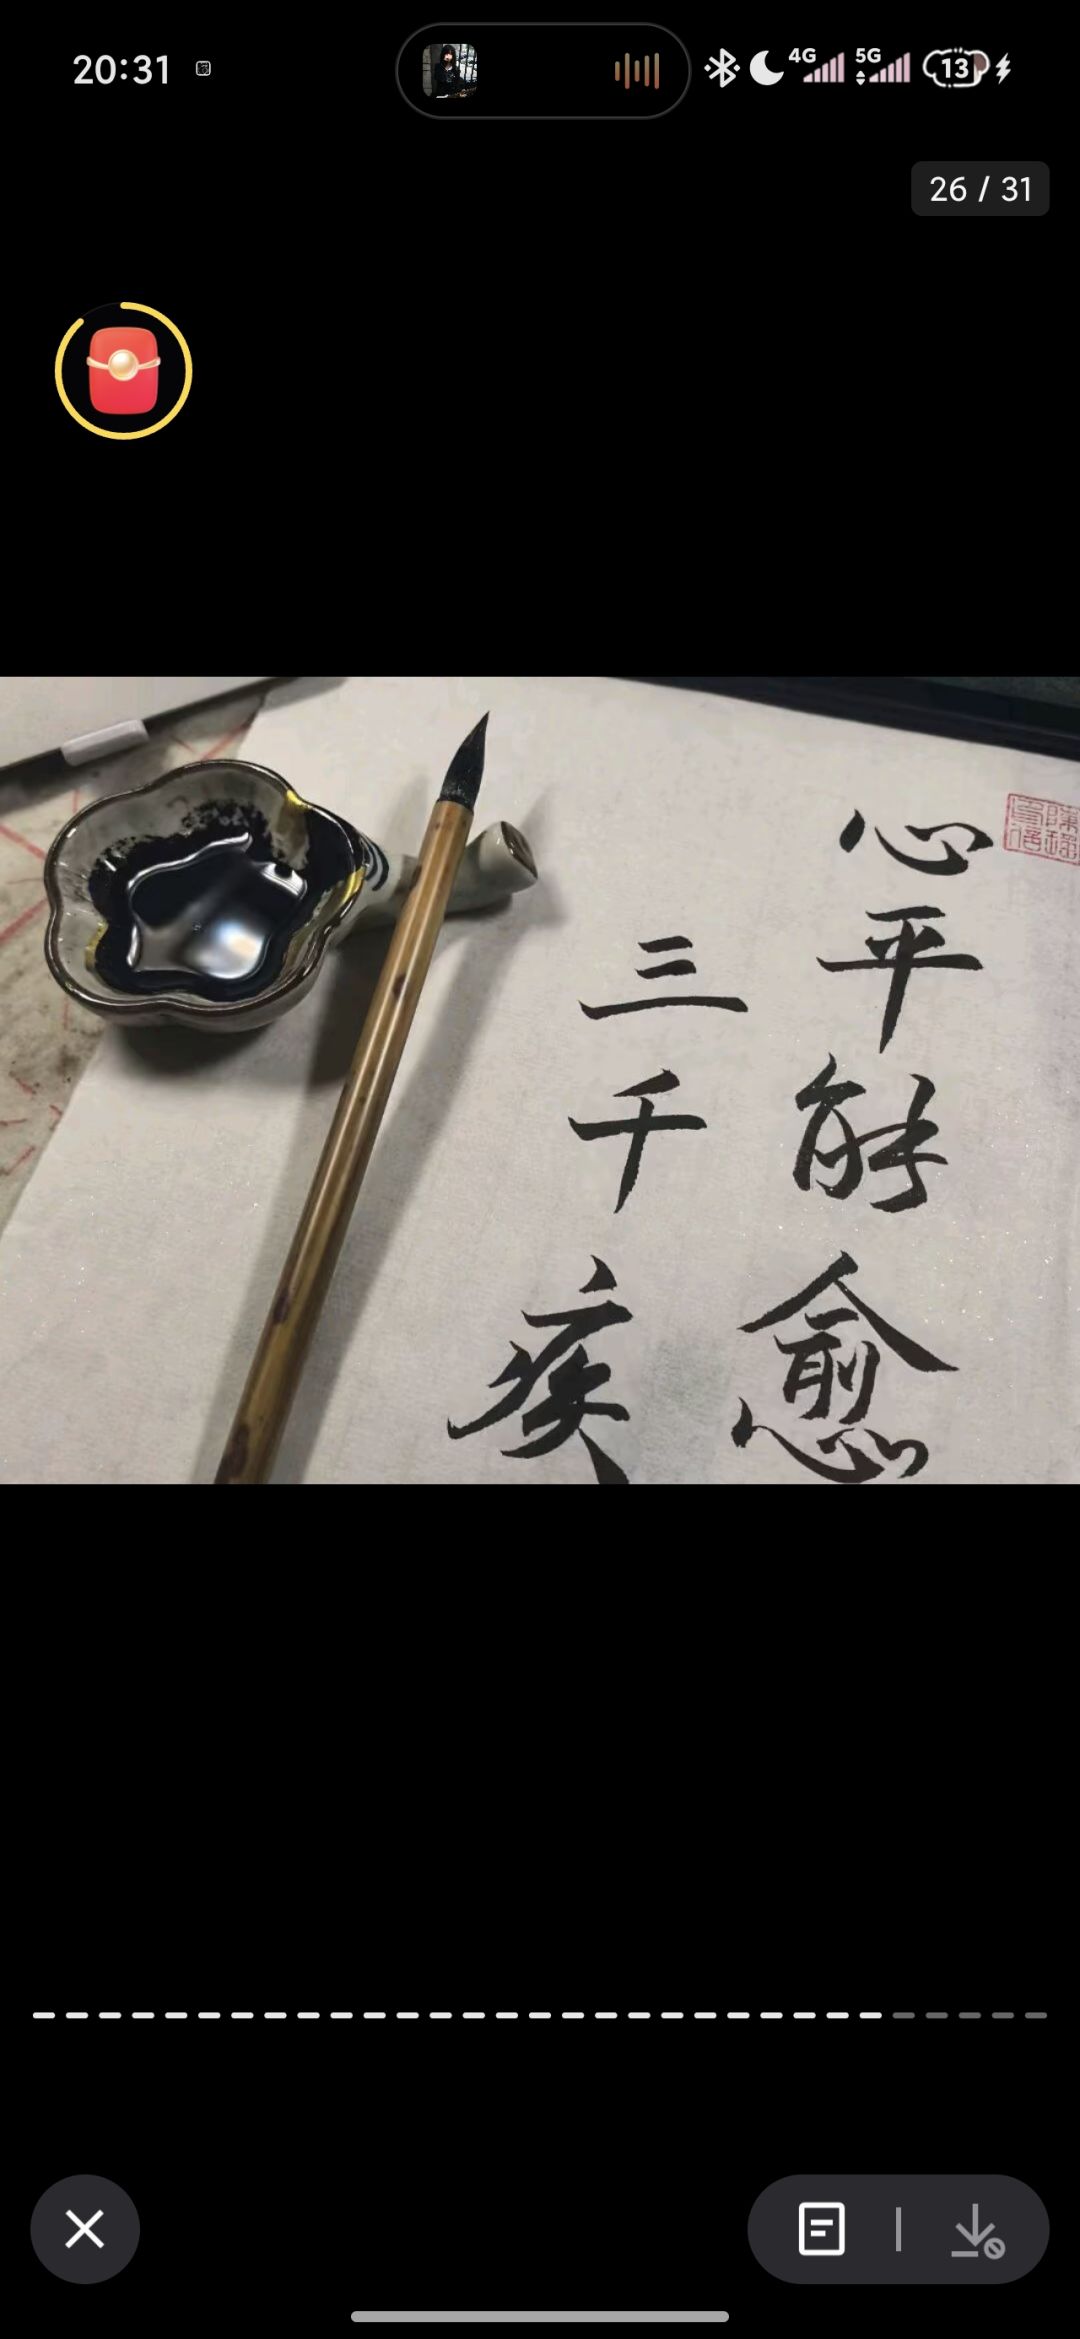 20:31
4G
5G
13
26 / 31
心平能愈
三千疾